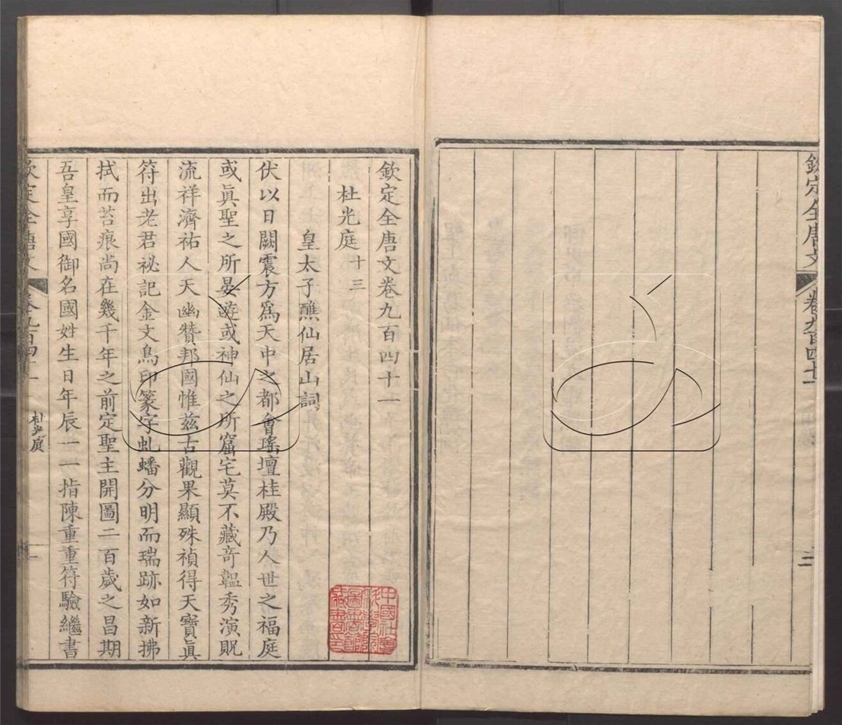 欽定全唐文
卷九百四十一
二
欽定全唐文卷九百四十一
杜光庭十三
皇太子醮仙居山詞
伏以日闢震方爲天中之都會瑤壇桂殿乃人世之福庭
或眞聖之所晏遊或神仙之所窟宅莫不藏奇韞秀演貺
流祥濟祐人天幽贊邦國惟茲古觀果顯殊禎得天寶眞
符出老君祕記金文鳥印篆字虬蟠分明而瑞跡如新拂
拭而苔痕尚在幾千年之前定聖主開圖二百歲之昌期
吾皇享國御名國姓生日年辰一一指陳重重符驗繼書
欽定全唐文
卷九百四十一
杜光庭
一
中國社會